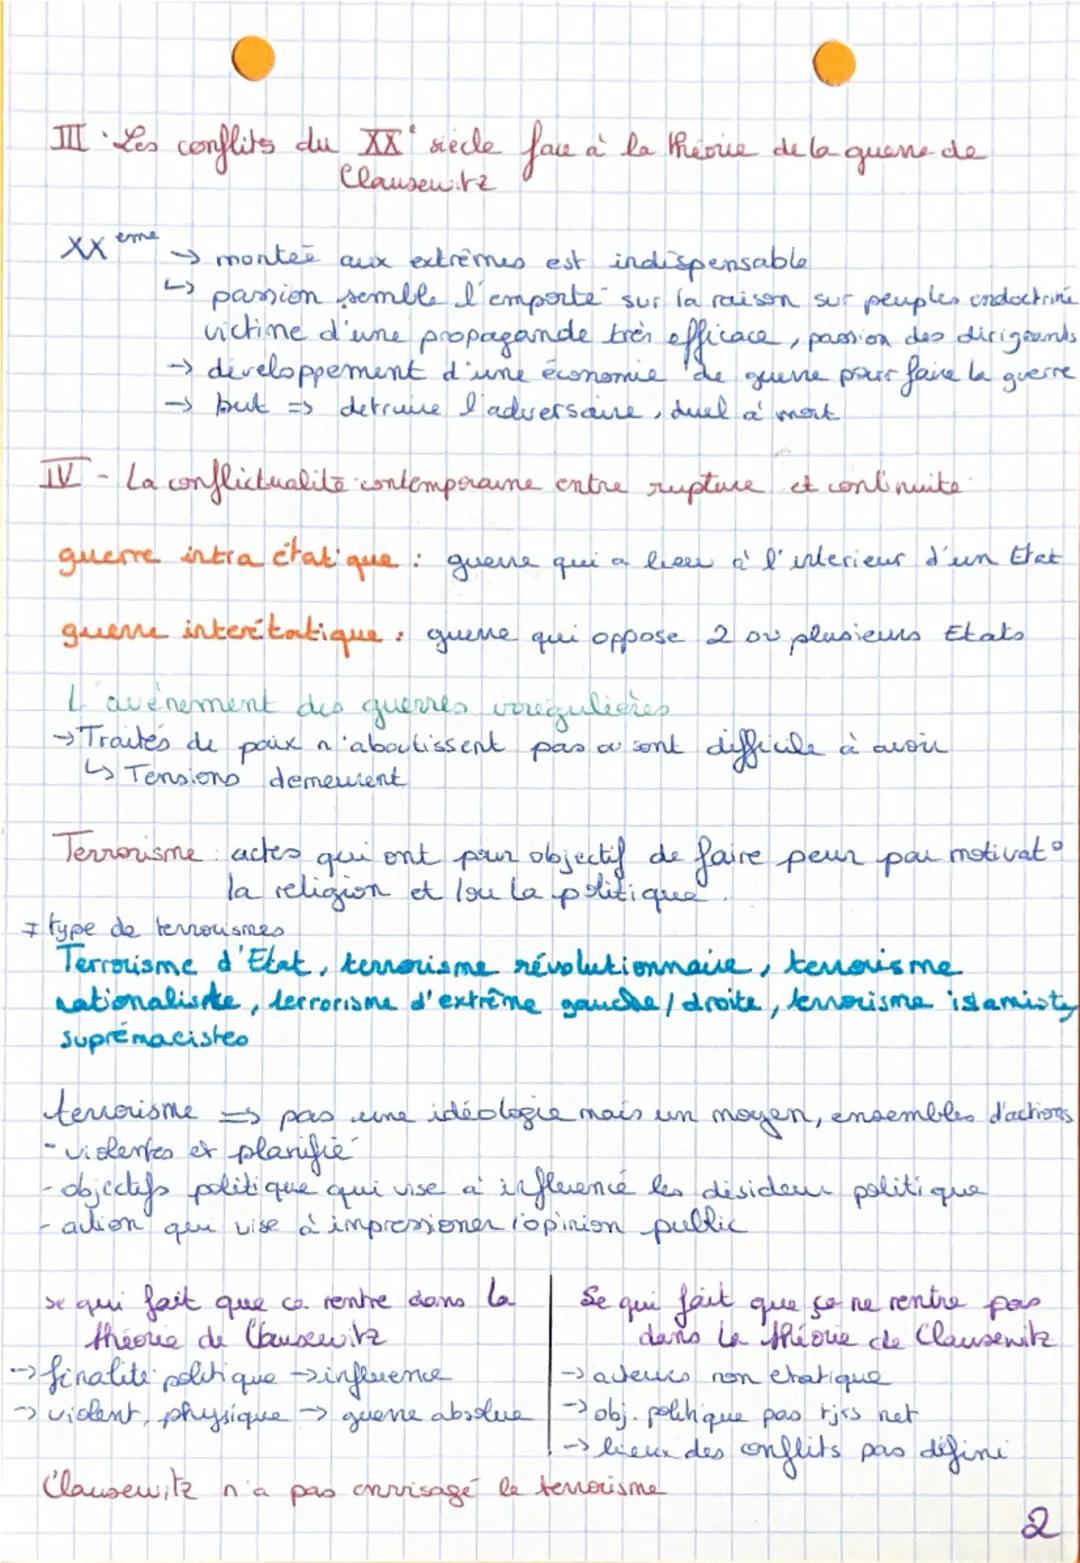 III - Les conflits du XXe siècle face à la théorie de la guerre de
Clausewitz
XXeme → monteé aux extrêmes est indispensable
↳ passion semble l'emporté sur la raison sur peuples endoctriné
victime d'une propagande très efficace, passion des dirigeants
→ développement d'une économie de guerre pour faire la guerre
→ but => detruire l'adversaire, duel à mort
IV - La conflictualité contemporaine entre rupture et continuité
guerre intra étatique : guerre qui a lieu à l'interieur d'un Etat
guerre interétatique : guerre qui oppose 2 ou plusieurs Etats
L'avénement des guerres irrégulières
→ Traités de paix n'aboutissent pas ou sont difficile à avoir
↳ Tensions demeurent
Terrorisme : actes qui ont pour objectif de faire peur par motivat°
la religion et/ou la politique.
≠ type de terrorismes
Terrorisme d'Etat, terrorisme révolutionnaire, terrorisme
nationaliste, terrorisme d'extrême gauche/droite, terrorisme islamiste,
suprémacistes
terrorisme => pas une idéologie mais un moyen, ensembles d'actions
- violentes et planifié
- objectifs politique qui vise à influencé les désideur politique
- action qui vise à impressioner l'opinion public
se qui fait que ca rentre dans la
théorie de Clausewitz
→ finalité politique → influence
→ violent, physique → guerre absolue
Se qui fait que ça ne rentre pas
dans la théorie de Clausewitz
→ acteurs non etatique
→ obj. politique pas tjrs net
→ lieux des conflits pas défini
Clausewitz n'a pas envisagé le terrorisme
2